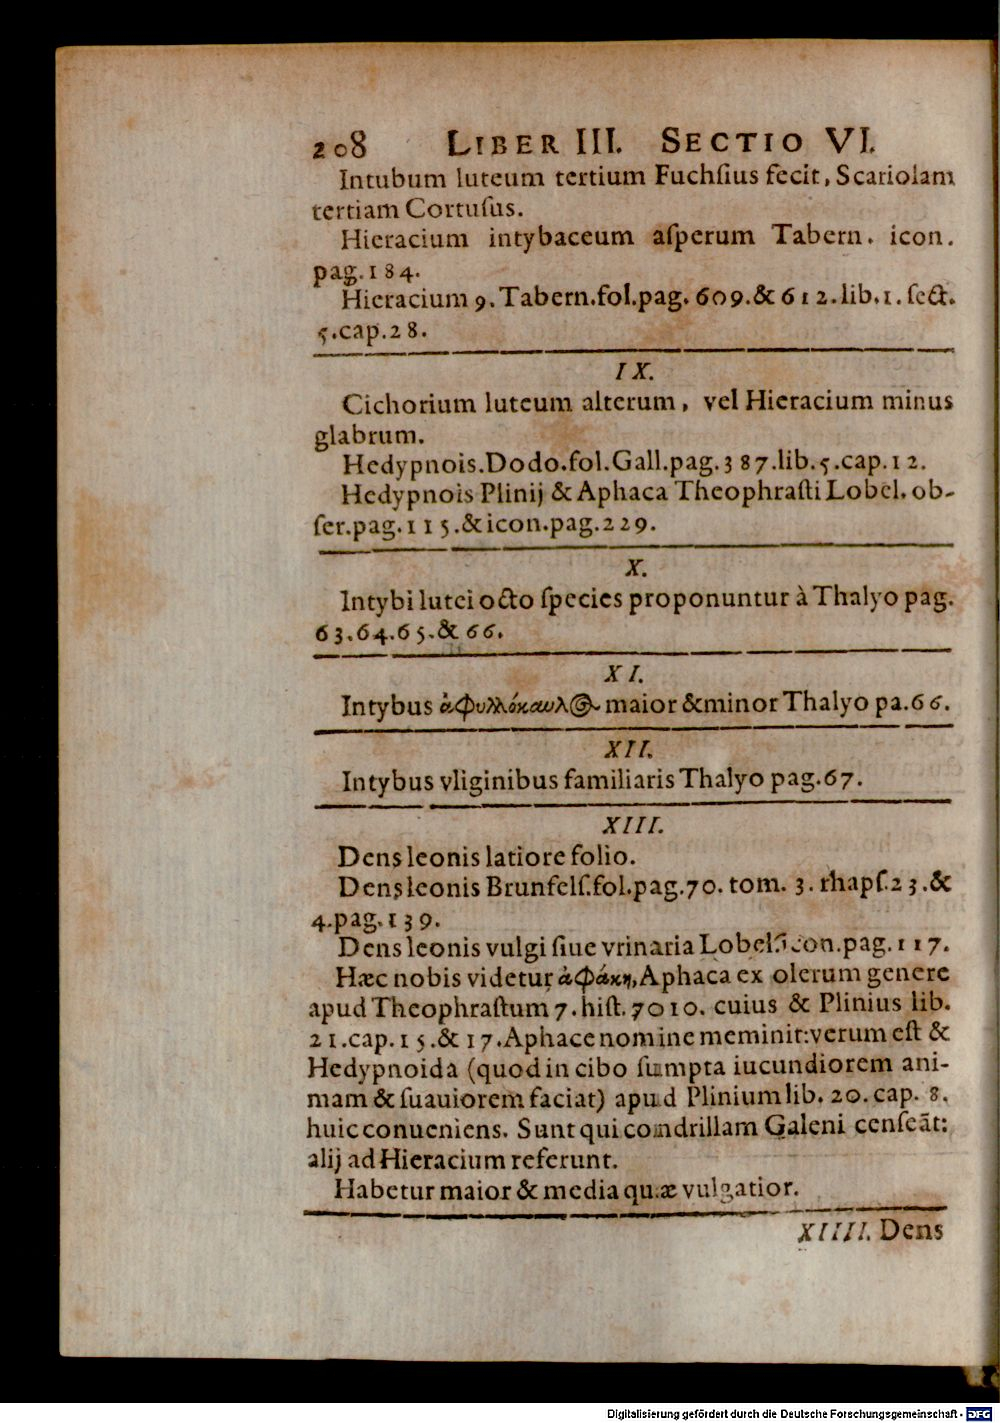 208 LIBER III. SECTIO VI.
Intubum luteum tertium Fuchſius fecit, Scariolam
tertiam Cortuſus.
Hieracium intybaceum aſperum Tabern. icon.
pag. 184.
Hieracium 9. Tabern. fol. pag. 609. & 612. lib. 1. ſect.
5. cap. 28.
IX.
Cichorium luteum alterum, vel Hieracium minus
glabrum.
Hedypnois. Dodo. fol. Gall. pag. 387. lib. 5. cap. 12.
Hedypnois Plinij & Aphaca Theophraſti Lobel. ob-
ſer. pag. 115. & icon. pag. 229.
X.
Intybi lutei octo ſpecies proponuntur à Thalyo pag.
63. 64. 65. & 66.
XI.
Intybus ἀφυλλόκαυλος maior & minor Thalyo pa. 66.
XII.
Intybus vliginibus familiaris Thalyo pag. 67.
XIII.
Dens leonis latiore folio.
Dens leonis Brunfelſ. fol. pag. 70. tom. 3. rhapſ. 23. &
4. pag. 139.
Dens leonis vulgi ſiue vrinaria Lobel. icon. pag. 117.
Hæc nobis videtur ἀφάκη, Aphaca ex olerum genere
apud Theophraſtum 7. hiſt. 7 0 10. cuius & Plinius lib.
21. cap. 15. & 17. Aphace nomine meminit: verum eſt &
Hedypnoida (quod in cibo ſumpta iucundiorem ani-
mam & ſuauiorem faciat) apud Plinium lib. 20. cap. 8.
huic conueniens. Sunt qui condrillam Galeni cenſeāt:
alij ad Hieracium referunt.
Habetur maior & media quæ vulgatior.
XIIII. Dens
Digitalisierung gefördert durch die Deutsche Forschungsgemeinschaft - DFG